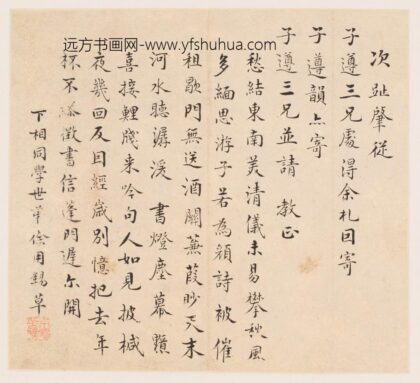 远方书画网--www.yfshuhua.com
次趾肇從
子遵三兄處得余札回寄
子遵韻亦寄
子遵三兄並請 教正
愁結東南美清儀未易攀秋風
多緬思游子若為顏詩被催
租歇門無送酒關蒹葭眇天末
河水聽潺湲 書燈塵幕
喜接鯉牋来吟向人如見披椷
夜幾回反因經歲別憶把去年
杯不徵書信蓬門遲尓開
下相同學世弟徐用錫草